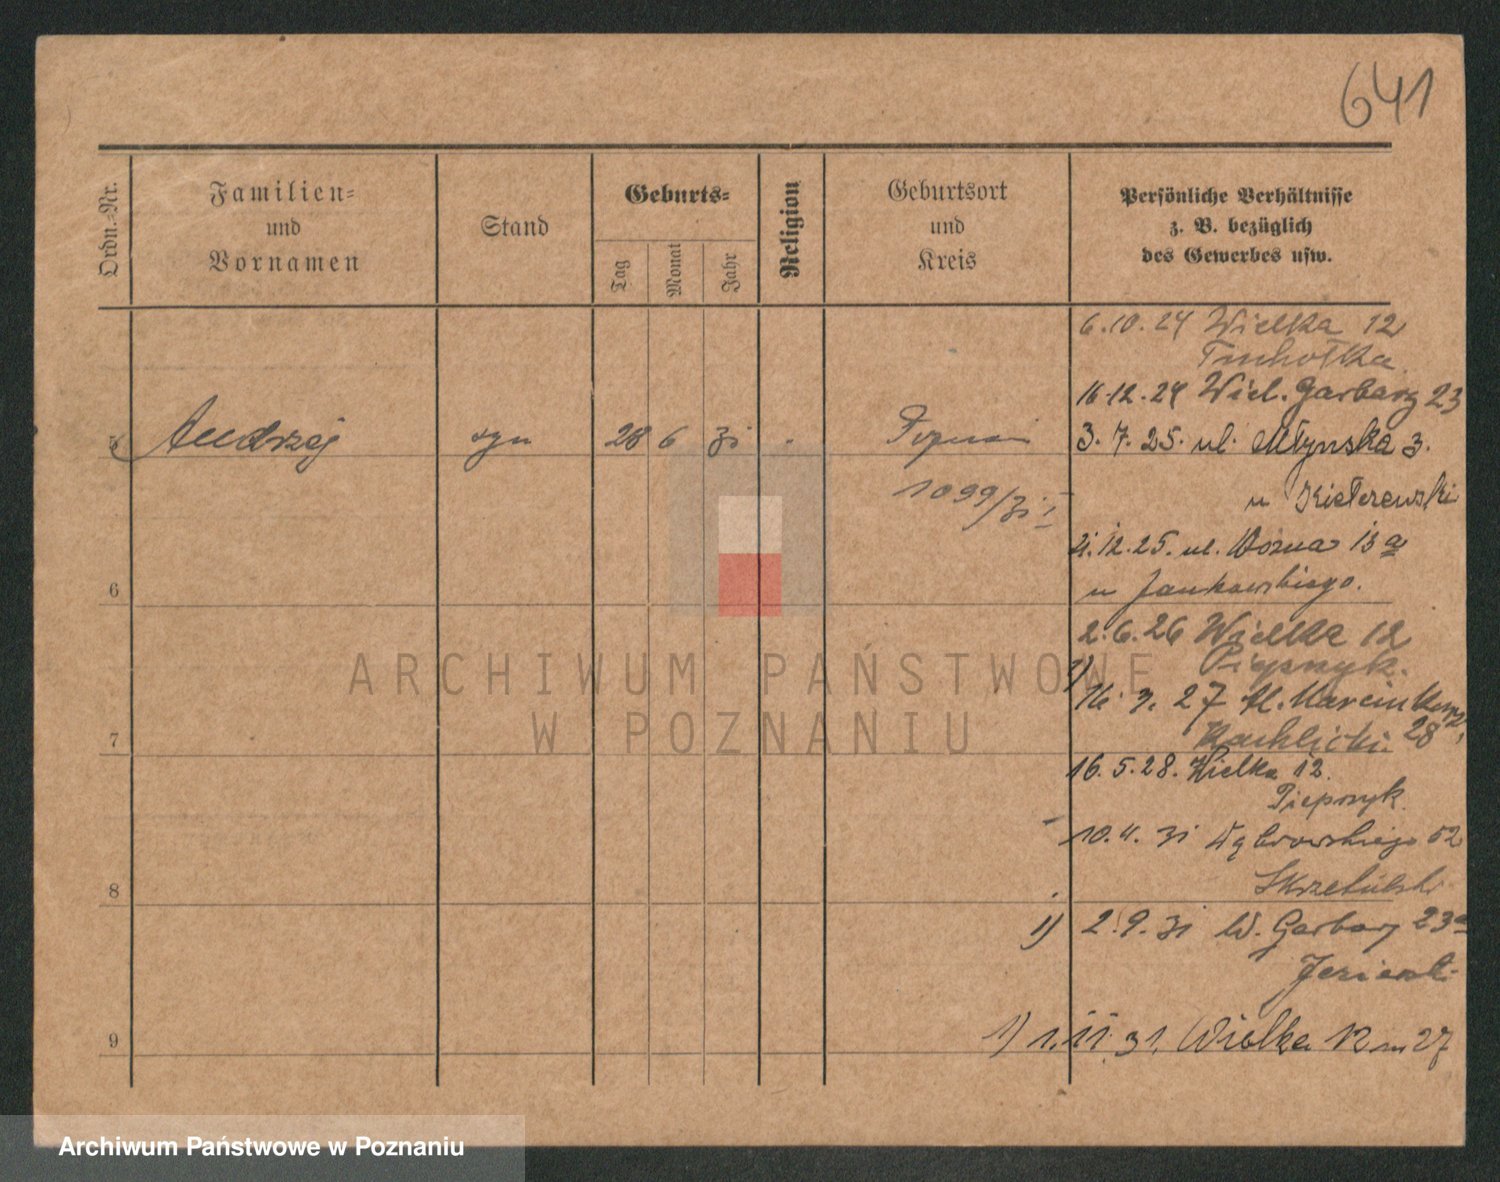 641
Ordn.-Nr.
Familien-
und
Vornamen
Stand
Geburts-
Tag
Monat
Jahr
Religion
Geburtsort
und
Kreis
Persönliche Verhältnisse
z. B. bezüglich
des Gewerbes usw.
6.10.24 Wielka 12
16.12.24 Wiel. Garbary 23
5 Andrzej syn 28 6 31 Poznań
3.7.25. ul. Młynska 3.
1099/31 I
u
12.25. ul. Woźna 13a
u Jankowskiego.
6
2.6.26 Wielka 12
1) Pieprzyk.
16. 27 Al. Marcinkows
28
7
16.5.28. Wielka 12.
Pieprzyk.
10.4.31 Dąbrowskiego 52
8
1) 2.9.31 W. Garbary 23a
1) 1.11.31. Wielka 12 m 27
9
ARCHIWUM PAŃSTWOWE
W POZNANIU
Archiwum Państwowe w Poznaniu